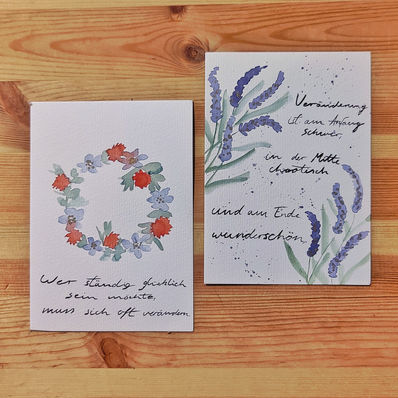 Wer ständig glücklich
sein möchte,
muss sich oft verändern
Veränderung
ist am Anfang
schwer,
in der Mitte
chaotisch
und am Ende
wunderschön.